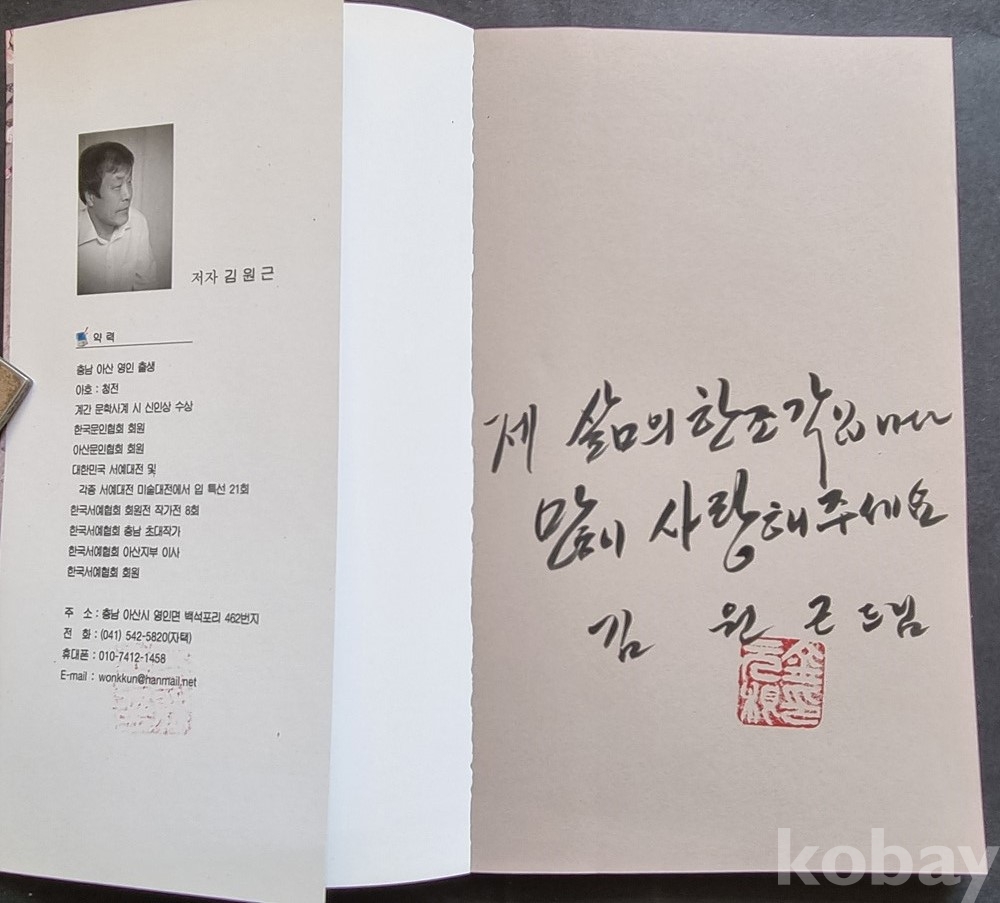 저자 김원근
약력
충남 아산 영인 출생
아호 : 청전
계간 문학시계 시 신인상 수상
한국문인협회 회원
아산문인협회 회원
대한민국 서예대전 및
각종 서예대전 미술대전에서 입 특선 21회
한국서예협회 회원전 작가전 8회
한국서예협회 충남 초대작가
한국서예협회 아산지부 이사
한국서예협회 회원
주 소 : 충남 아산시 영인면 백석포리 462번지
전 화 : (041) 542-5820(자택)
휴대폰 : 010-7412-1458
E-mail : wonkkun@hanmail.net
제 삶의 한조각입니다
많이 사랑해주세요
김 원 근 드림
kobay